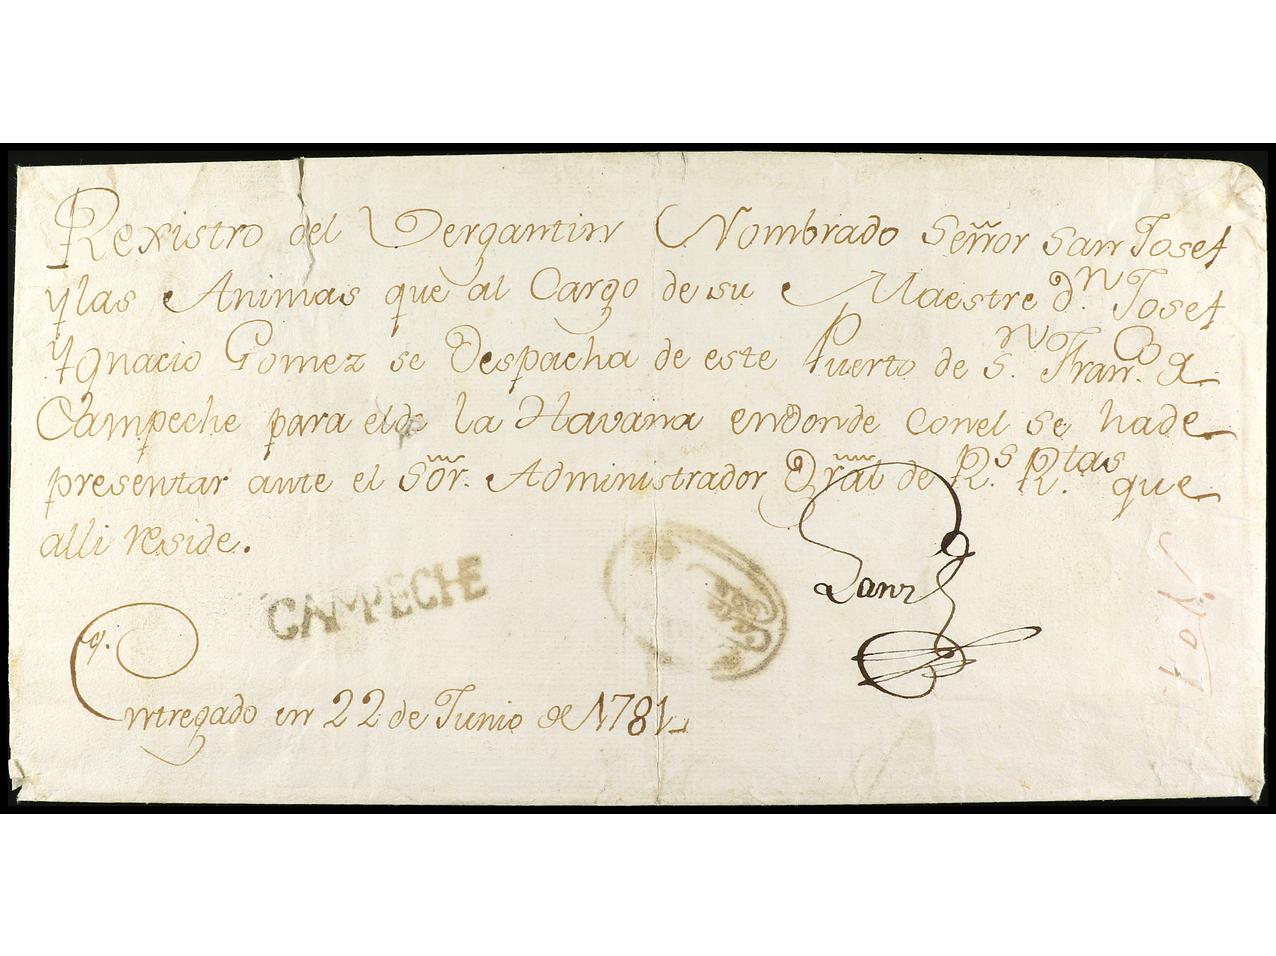 Rexistro del Vergantin Nombrado Señor San Josef
y las Animas que al Cargo de su Maestre dn. Josef
Ygnacio Gomez se Despacha de este Puerto de Sn. Franco. de
Campeche para el de la Havana en donde con el se ha de
presentar ante el Sor. Administrador Gral de Rs. Rtas que
alli reside.
CAMPECHE
Entregado en 22 de Junio de 1781